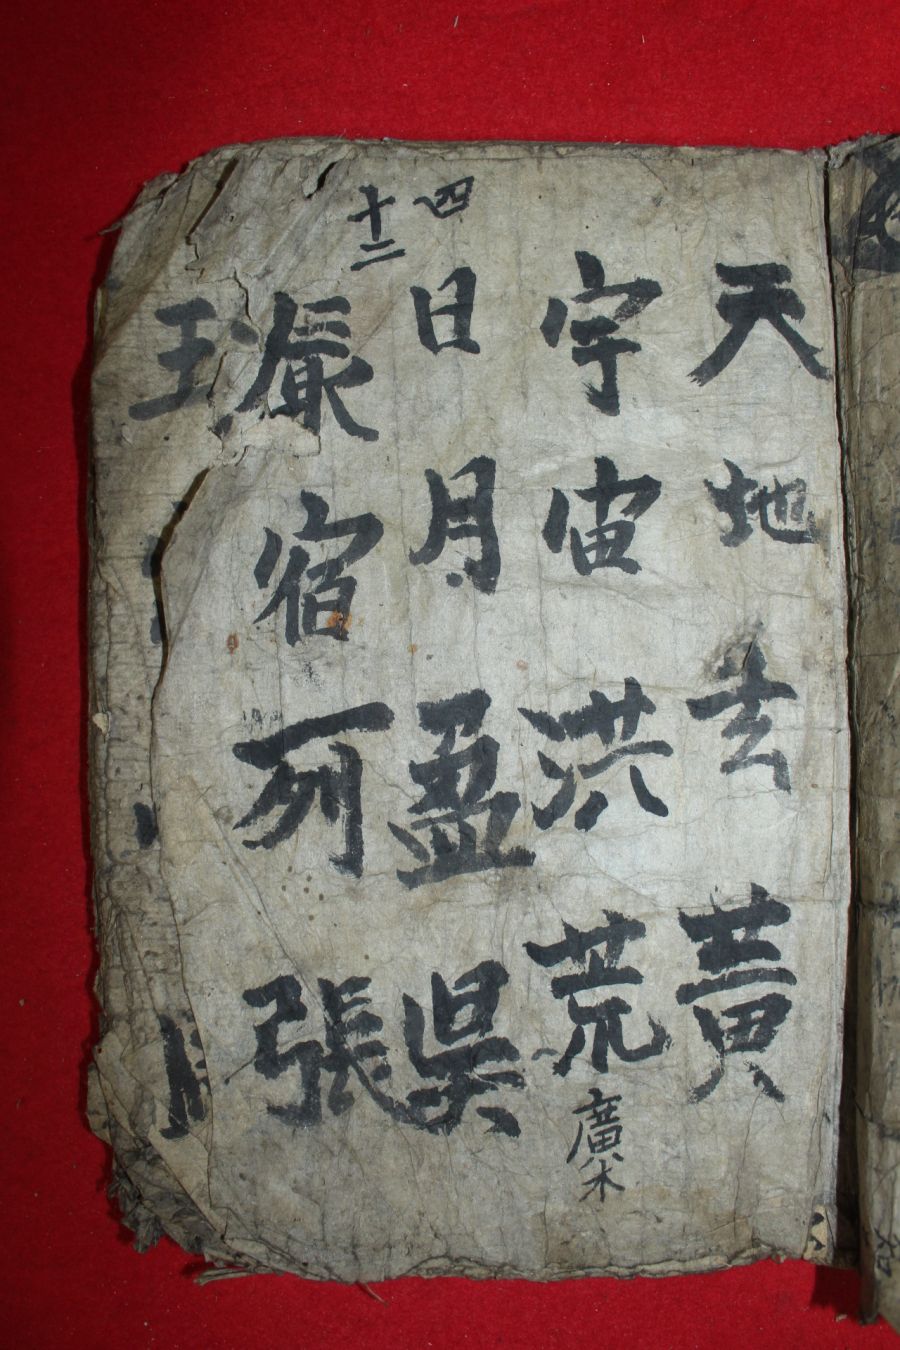 天地玄黃
宇宙洪荒
廣
四
日月盈昃
十二
辰宿列張
王